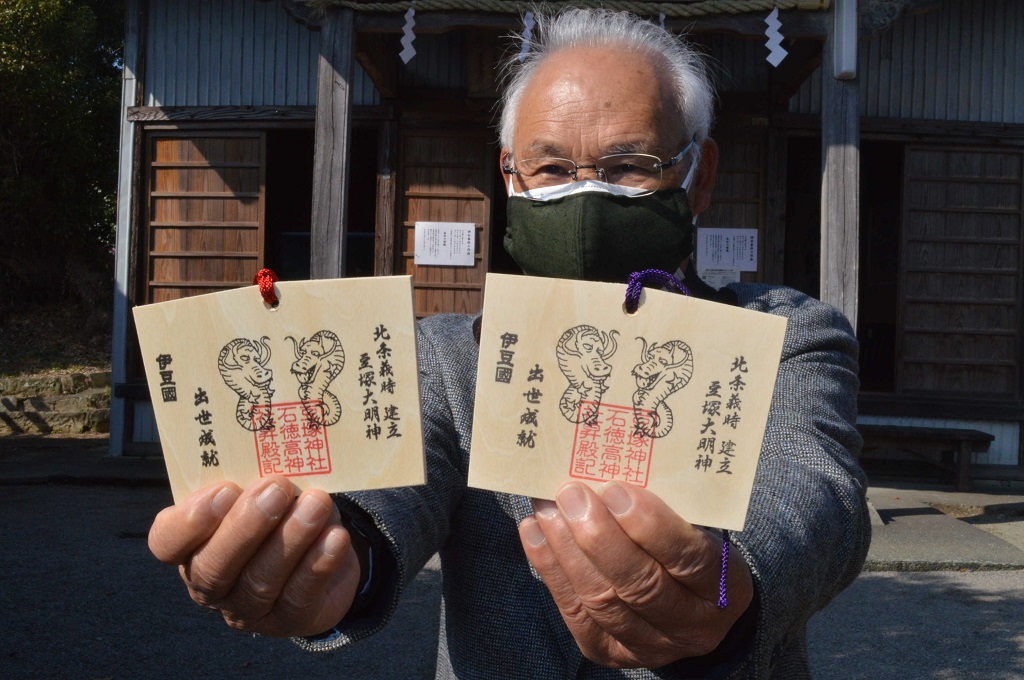 北条義時 建立
豆塚大明神
豆塚神社
石徳高神
社昇殿記
出世成就
伊豆國
北条義時 建立
豆塚大明神
豆塚神社
石徳高神
社昇殿記
出世成就
伊豆國